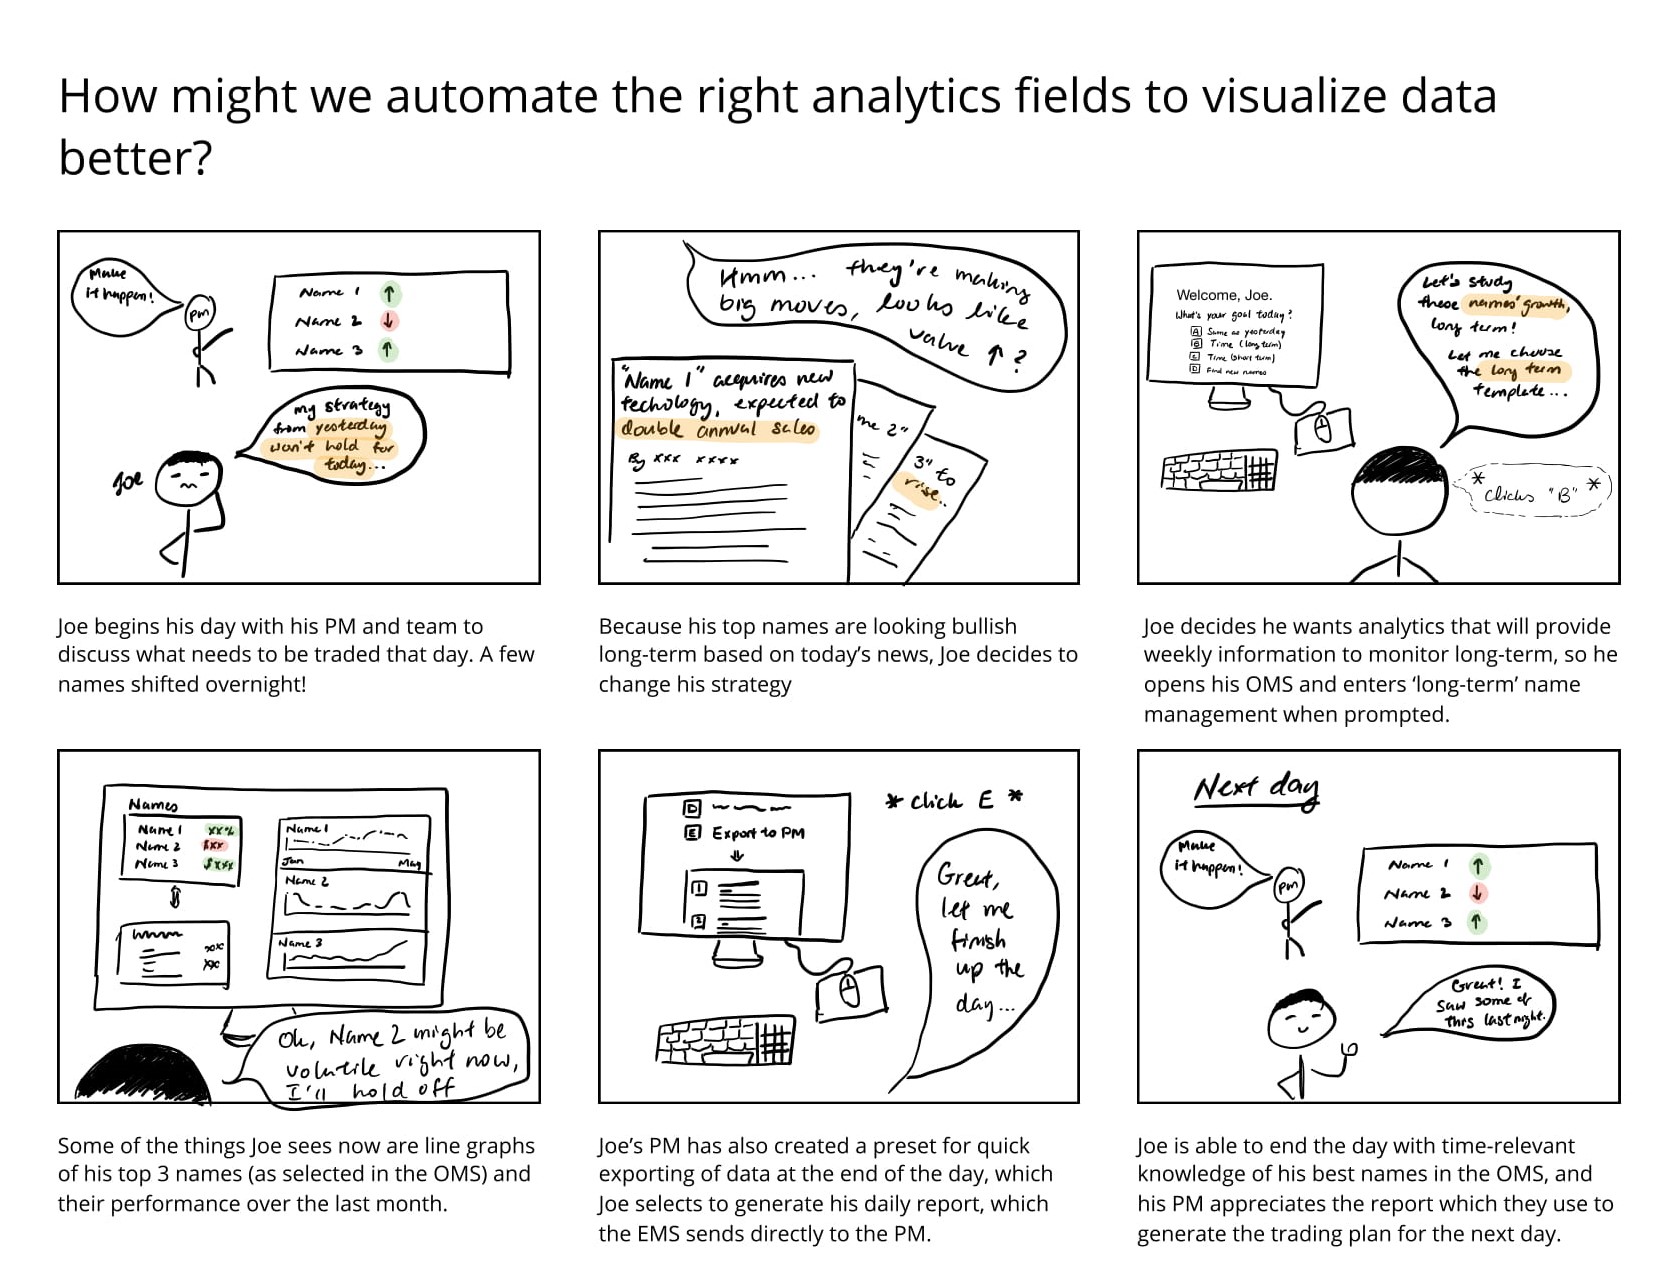 How might we automate the right analytics fields to visualize data
better?
Make
it happen!
PM
Name 1 ↑
Name 2 ↓
Name 3 ↑
my strategy
from yesterday
won't hold for
today...
Joe
Joe begins his day with his PM and team to
discuss what needs to be traded that day. A few
names shifted overnight!
Hmm... they're making
big moves, looks like
value ↑?
"Name 1" acquires new
techology, expected to
double annual sales
By xxx xxxx
me 2"
3" to
rise..
Because his top names are looking bullish
long-term based on today's news, Joe decides to
change his strategy
Welcome, Joe.
What's your goal today?
A Same as yesterday
B Time (long term)
C Time (short term)
D Find new names
Let's study
these names' growth,
long term!
Let me choose
the long term
template...
* Clicks "B" *
Joe decides he wants analytics that will provide
weekly information to monitor long-term, so he
opens his OMS and enters ‘long-term’ name
management when prompted.
Names
Name 1 xx%
Name 2 $xx
Name 3 $xxx
xxx
xxx
Name 1
Jan May
Name 2
Name 3
Oh, Name 2 might be
volatile right now,
I'll hold off
Some of the things Joe sees now are line graphs
of his top 3 names (as selected in the OMS) and
their performance over the last month.
D
E Export to PM
1
2
* click E *
Great,
let me
finish
up the
day...
Joe’s PM has also created a preset for quick
exporting of data at the end of the day, which
Joe selects to generate his daily report, which
the EMS sends directly to the PM.
Next day
Make
it happen!
PM
Name 1 ↑
Name 2 ↓
Name 3 ↑
Great! I
saw some of
this last night.
Joe is able to end the day with time-relevant
knowledge of his best names in the OMS, and
his PM appreciates the report which they use to
generate the trading plan for the next day.